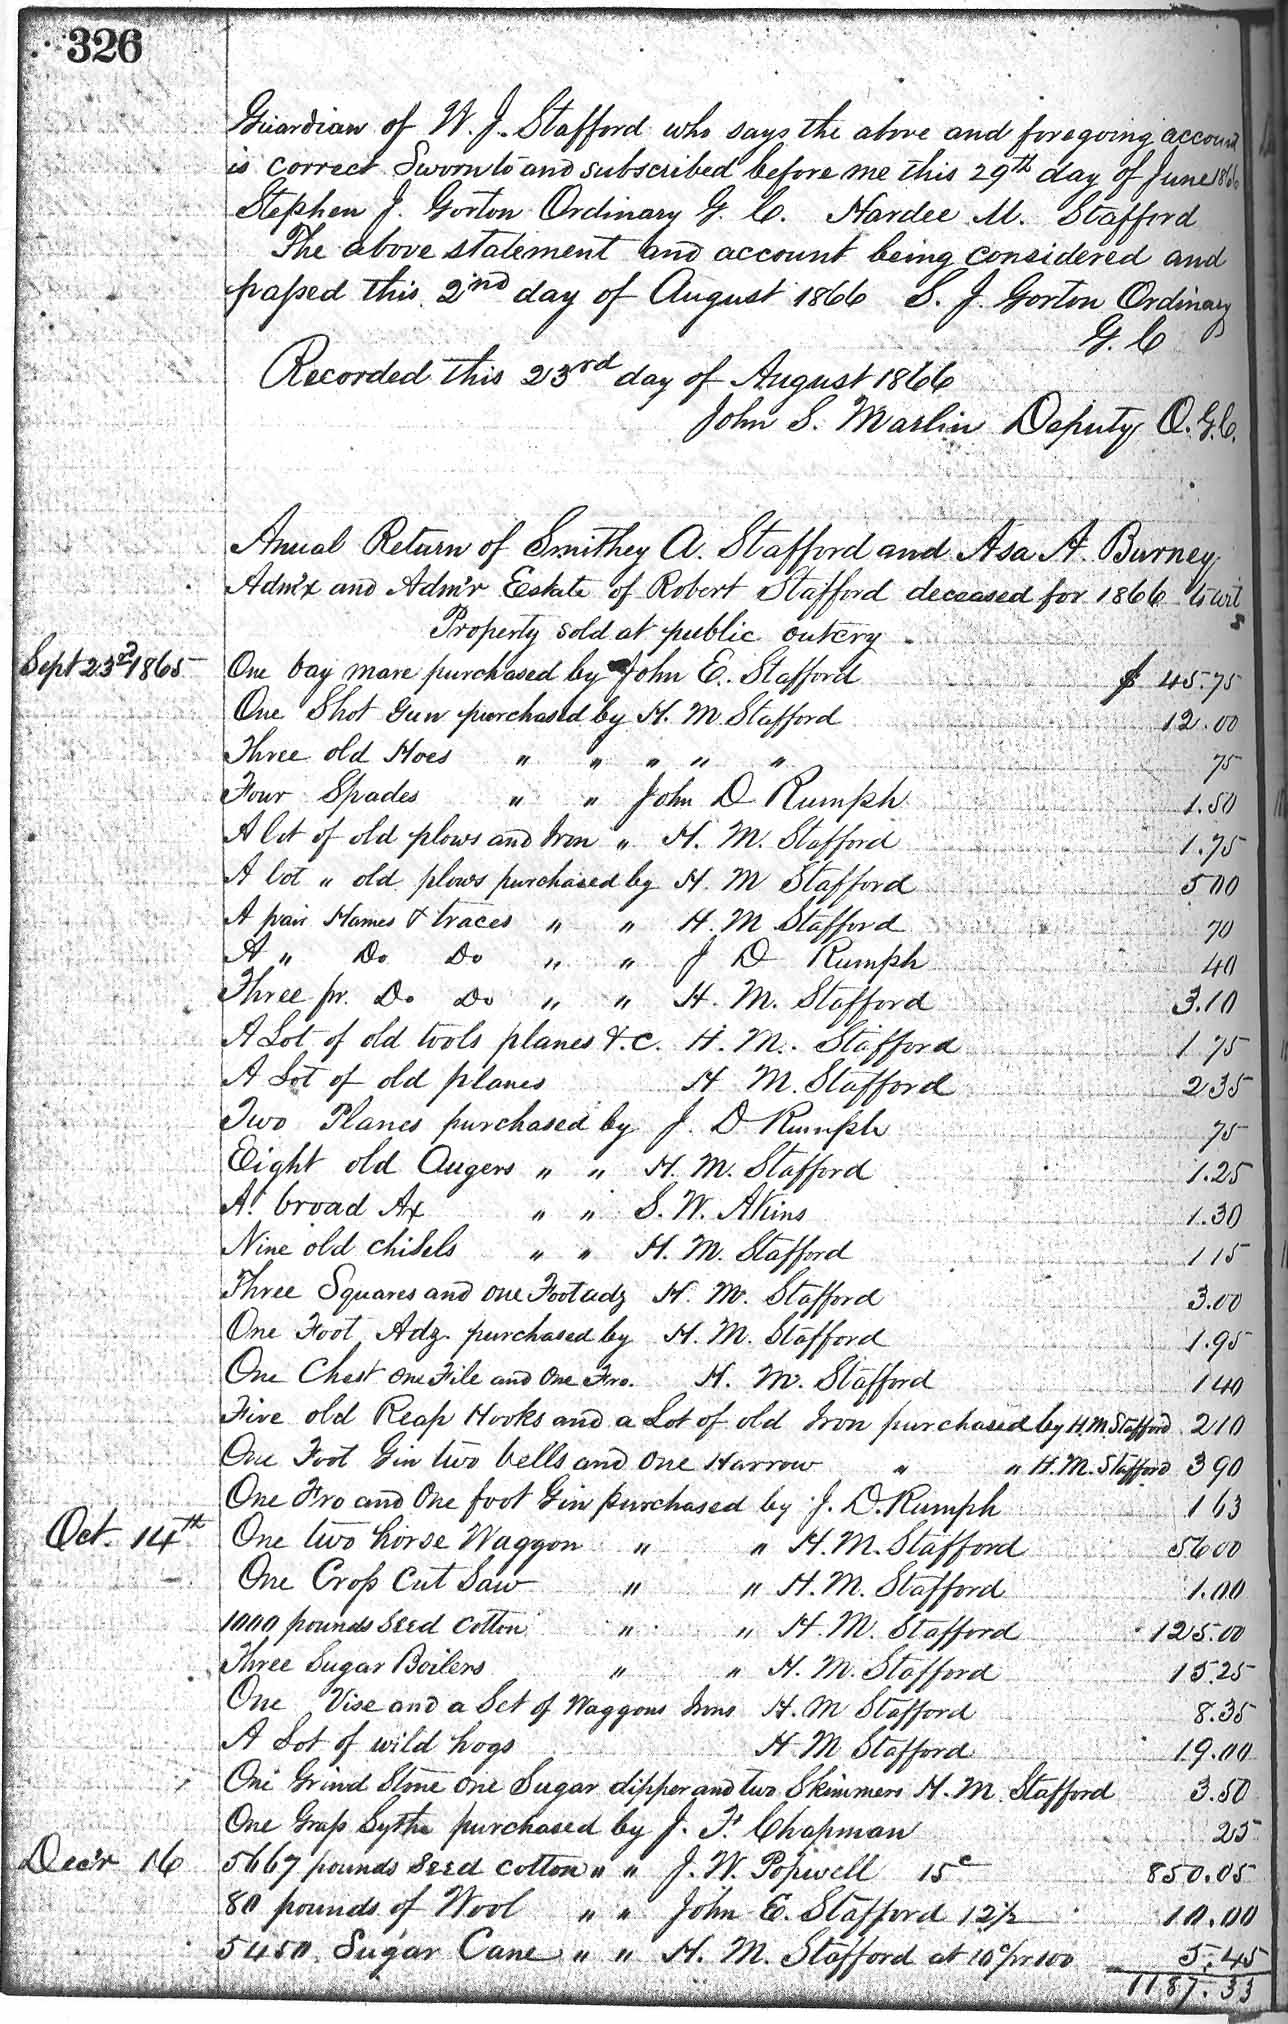 326
Guardian of W. J. Stafford who says the above and foregoing account
is correct Sworn to and subscribed before me this 29th day of June 1866
Stephen J. Gorton Ordinary G. C. Hardee M. Stafford
The above statement and account being considered and
paſsed this 2nd day of August 1866 S. J. Gorton Ordinary
G. C
Recorded this 23rd day of August 1866
John S. Marlin Deputy O. G. C.
Anual Return of Smithey A. Stafford and Asa A. Burney
Adm'x and Adm'r Estate of Robert Stafford deceased for 1866 to wit
Property sold at public outcry
Sept 23d 1865 One bay mare purchased by John E. Stafford $ 45.75
One Shot Gun purchased by H. M. Stafford 12.00
Three old Hoes " " " " " 75
Four Spades " " John D Rumph 1.50
A lot of old plows and Iron " H. M. Stafford 1.75
A lot " old plows purchased by H. M Stafford 500
A pair Hames & traces " " H. M Stafford 70
A " Do Do " " J D Rumph 40
Three pr. Do Do " " H. M. Stafford 3.10
A Lot of old tools planes &.c. H. M. Stafford 1 75
A Lot of old planes H M. Stafford 235
Two Planes purchased by J. D Rumph 75
Eight old Augers " " H. M. Stafford 1.25
A broad Ax " " S. W. Akins 1.30
Nine old chisels " " H. M. Stafford 1 15
Three Squares and one Foot adz H. M. Stafford 3.00
One Foot Adz purchased by H. M. Stafford 1.95
One Chest one File and One Fro. H. M. Stafford 1 40
Five old Reap Hooks and a Lot of old Iron purchased by H. M. Stafford 210
One Foot Gin two bells and one Harrow " " H. M. Stafford 3 90
One Fro and One foot Gin purchased by J. D. Rumph 1 63
Oct. 14th One two horse Waggon " " H. M. Stafford 5600
One Croſs Cut Saw " " H. M. Stafford 1.00
1000 pounds Seed Cotton " " H. M. Stafford 125.00
Three Sugar Boilers " " H. M. Stafford 15.25
One Vise and a Set of Waggons Irons H. M Stafford 8.35
A Lot of wild hogs H M Stafford 19.00
One Grind Stone one Sugar dipper and two Skimmers H. M. Stafford 3.50
One Graſs Sythe purchased by J. F. Chapman 25
Dec'r 16 5667 pounds Seed Cotton " " J. W. Popwell 15c 850.05
80 pounds of Wool " " John E. Stafford 12½ 10.00
5450 Sugar Cane " " H. M. Stafford at 10c pr 100 5.45
1187.33